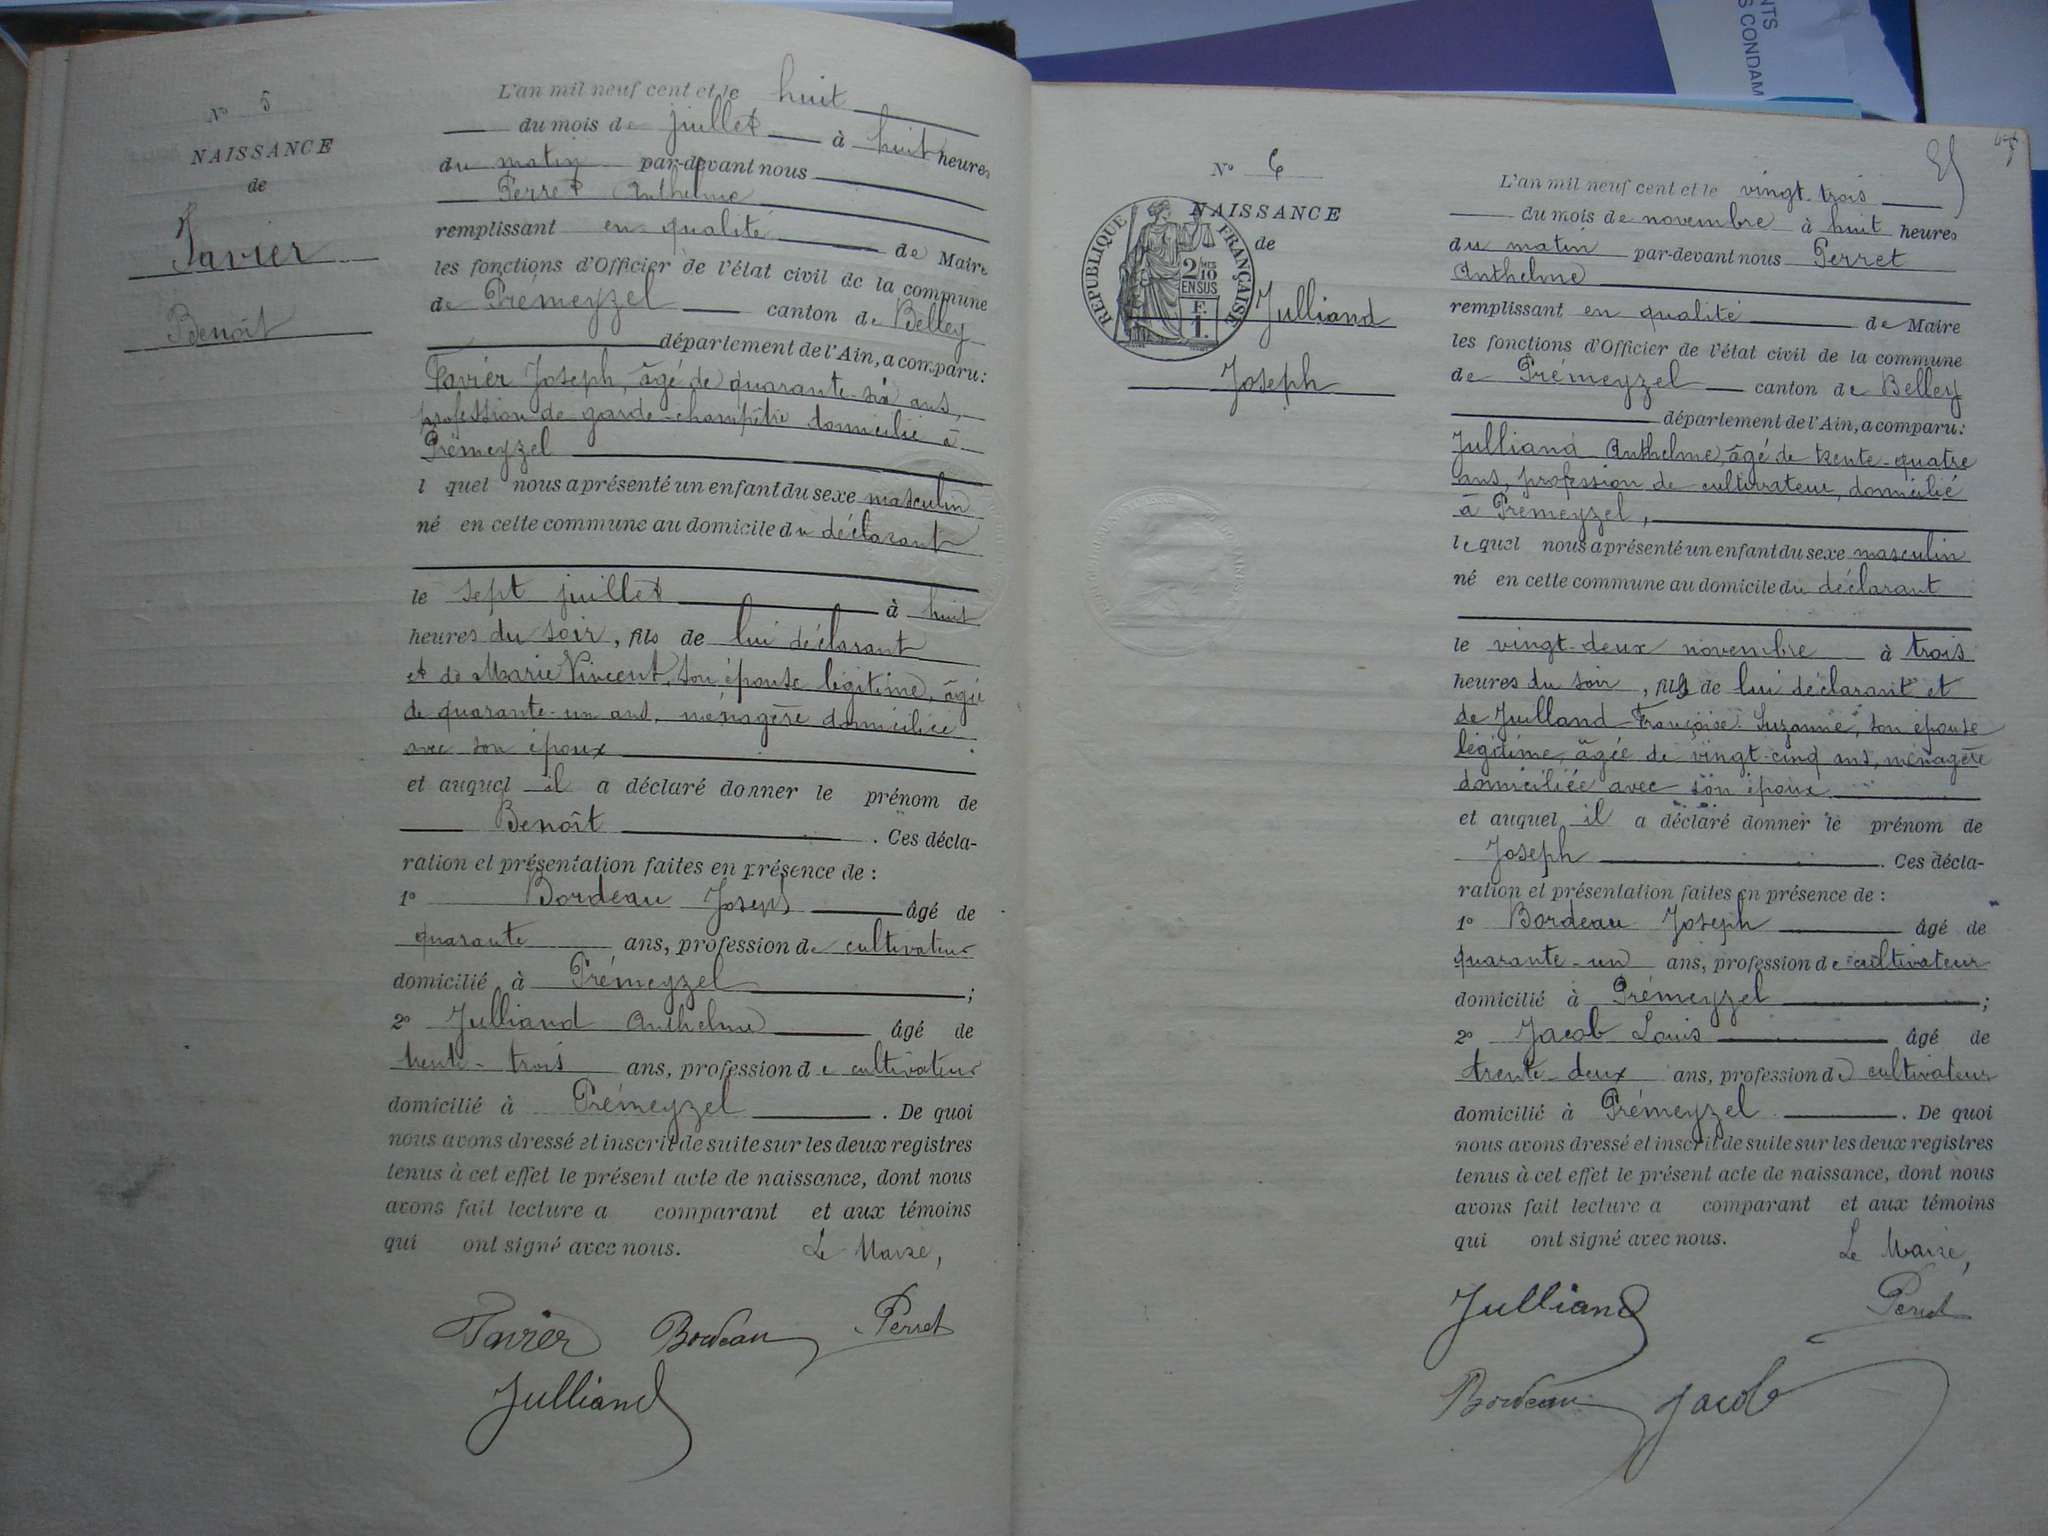 N° 5
NAISSANCE
de
Tavier
Benoît
L'an mil neuf cent et le huit
du mois de juillet à huit heures
du matin par-devant nous
Perret Anthelme
remplissant en qualité de Maire
les fonctions d'Officier de l'état civil de la commune
de Prémeyzel canton de Belley
département de l'Ain, a comparu:
Tavier Joseph, âgé de quarante-six ans,
profession de garde-champêtre domicilié à
Prémeyzel
l quel nous a présenté un enfant du sexe masculin
né en cette commune au domicile du déclarant
le sept juillet à huit
heures du soir, fils de lui déclarant
et de Marie Vincent, son épouse légitime, âgée
de quarante-un ans, ménagère domiciliée
avec son époux
et auquel il a déclaré donner le prénom de
Benoît . Ces décla-
ration et présentation faites en présence de :
1° Bordeau Joseph âgé de
quarante ans, profession de cultivateur
domicilié à Prémeyzel ;
2° Julliand Anthelme âgé de
trente-trois ans, profession de cultivateur
domicilié à Prémeyzel . De quoi
nous avons dressé et inscrit de suite sur les deux registres
tenus à cet effet le présent acte de naissance, dont nous
avons fait lecture a comparant et aux témoins
qui ont signé avec nous. Le Maire,
Tavier Bordeau Perret
Julliand
N° 6
NAISSANCE
de
RÉPUBLIQUE FRANÇAISE
2/10 MES
EN SUS
F.
1.
Julliand
Joseph
L'an mil neuf cent et le vingt-trois
du mois de novembre à huit heures
du matin par-devant nous Perret
Anthelme
remplissant en qualité de Maire
les fonctions d'Officier de l'état civil de la commune
de Prémeyzel canton de Belley
département de l'Ain, a comparu:
Julliand Anthelme, âgé de trente-quatre
ans, profession de cultivateur, domicilié
à Prémeyzel,
lequel nous a présenté un enfant du sexe masculin
né en cette commune au domicile du déclarant
le vingt-deux novembre à trois
heures du soir, fils de lui déclarant et
de Juilland Françoise Suzanne, son épouse
légitime, âgée de vingt-cinq ans, ménagère
domiciliée avec son époux
et auquel il a déclaré donner le prénom de
Joseph . Ces décla-
ration et présentation faites en présence de :
1° Bordeau Joseph âgé de
quarante-un ans, profession de cultivateur
domicilié à Prémeyzel ;
2° Jacob Louis âgé de
trente-deux ans, profession de cultivateur
domicilié à Prémeyzel . De quoi
nous avons dressé et inscrit de suite sur les deux registres
tenus à cet effet le présent acte de naissance, dont nous
avons fait lecture a comparant et aux témoins
qui ont signé avec nous. Le Maire,
Julliand Perret
Bordeau Jacob
NTS
S CONDAM